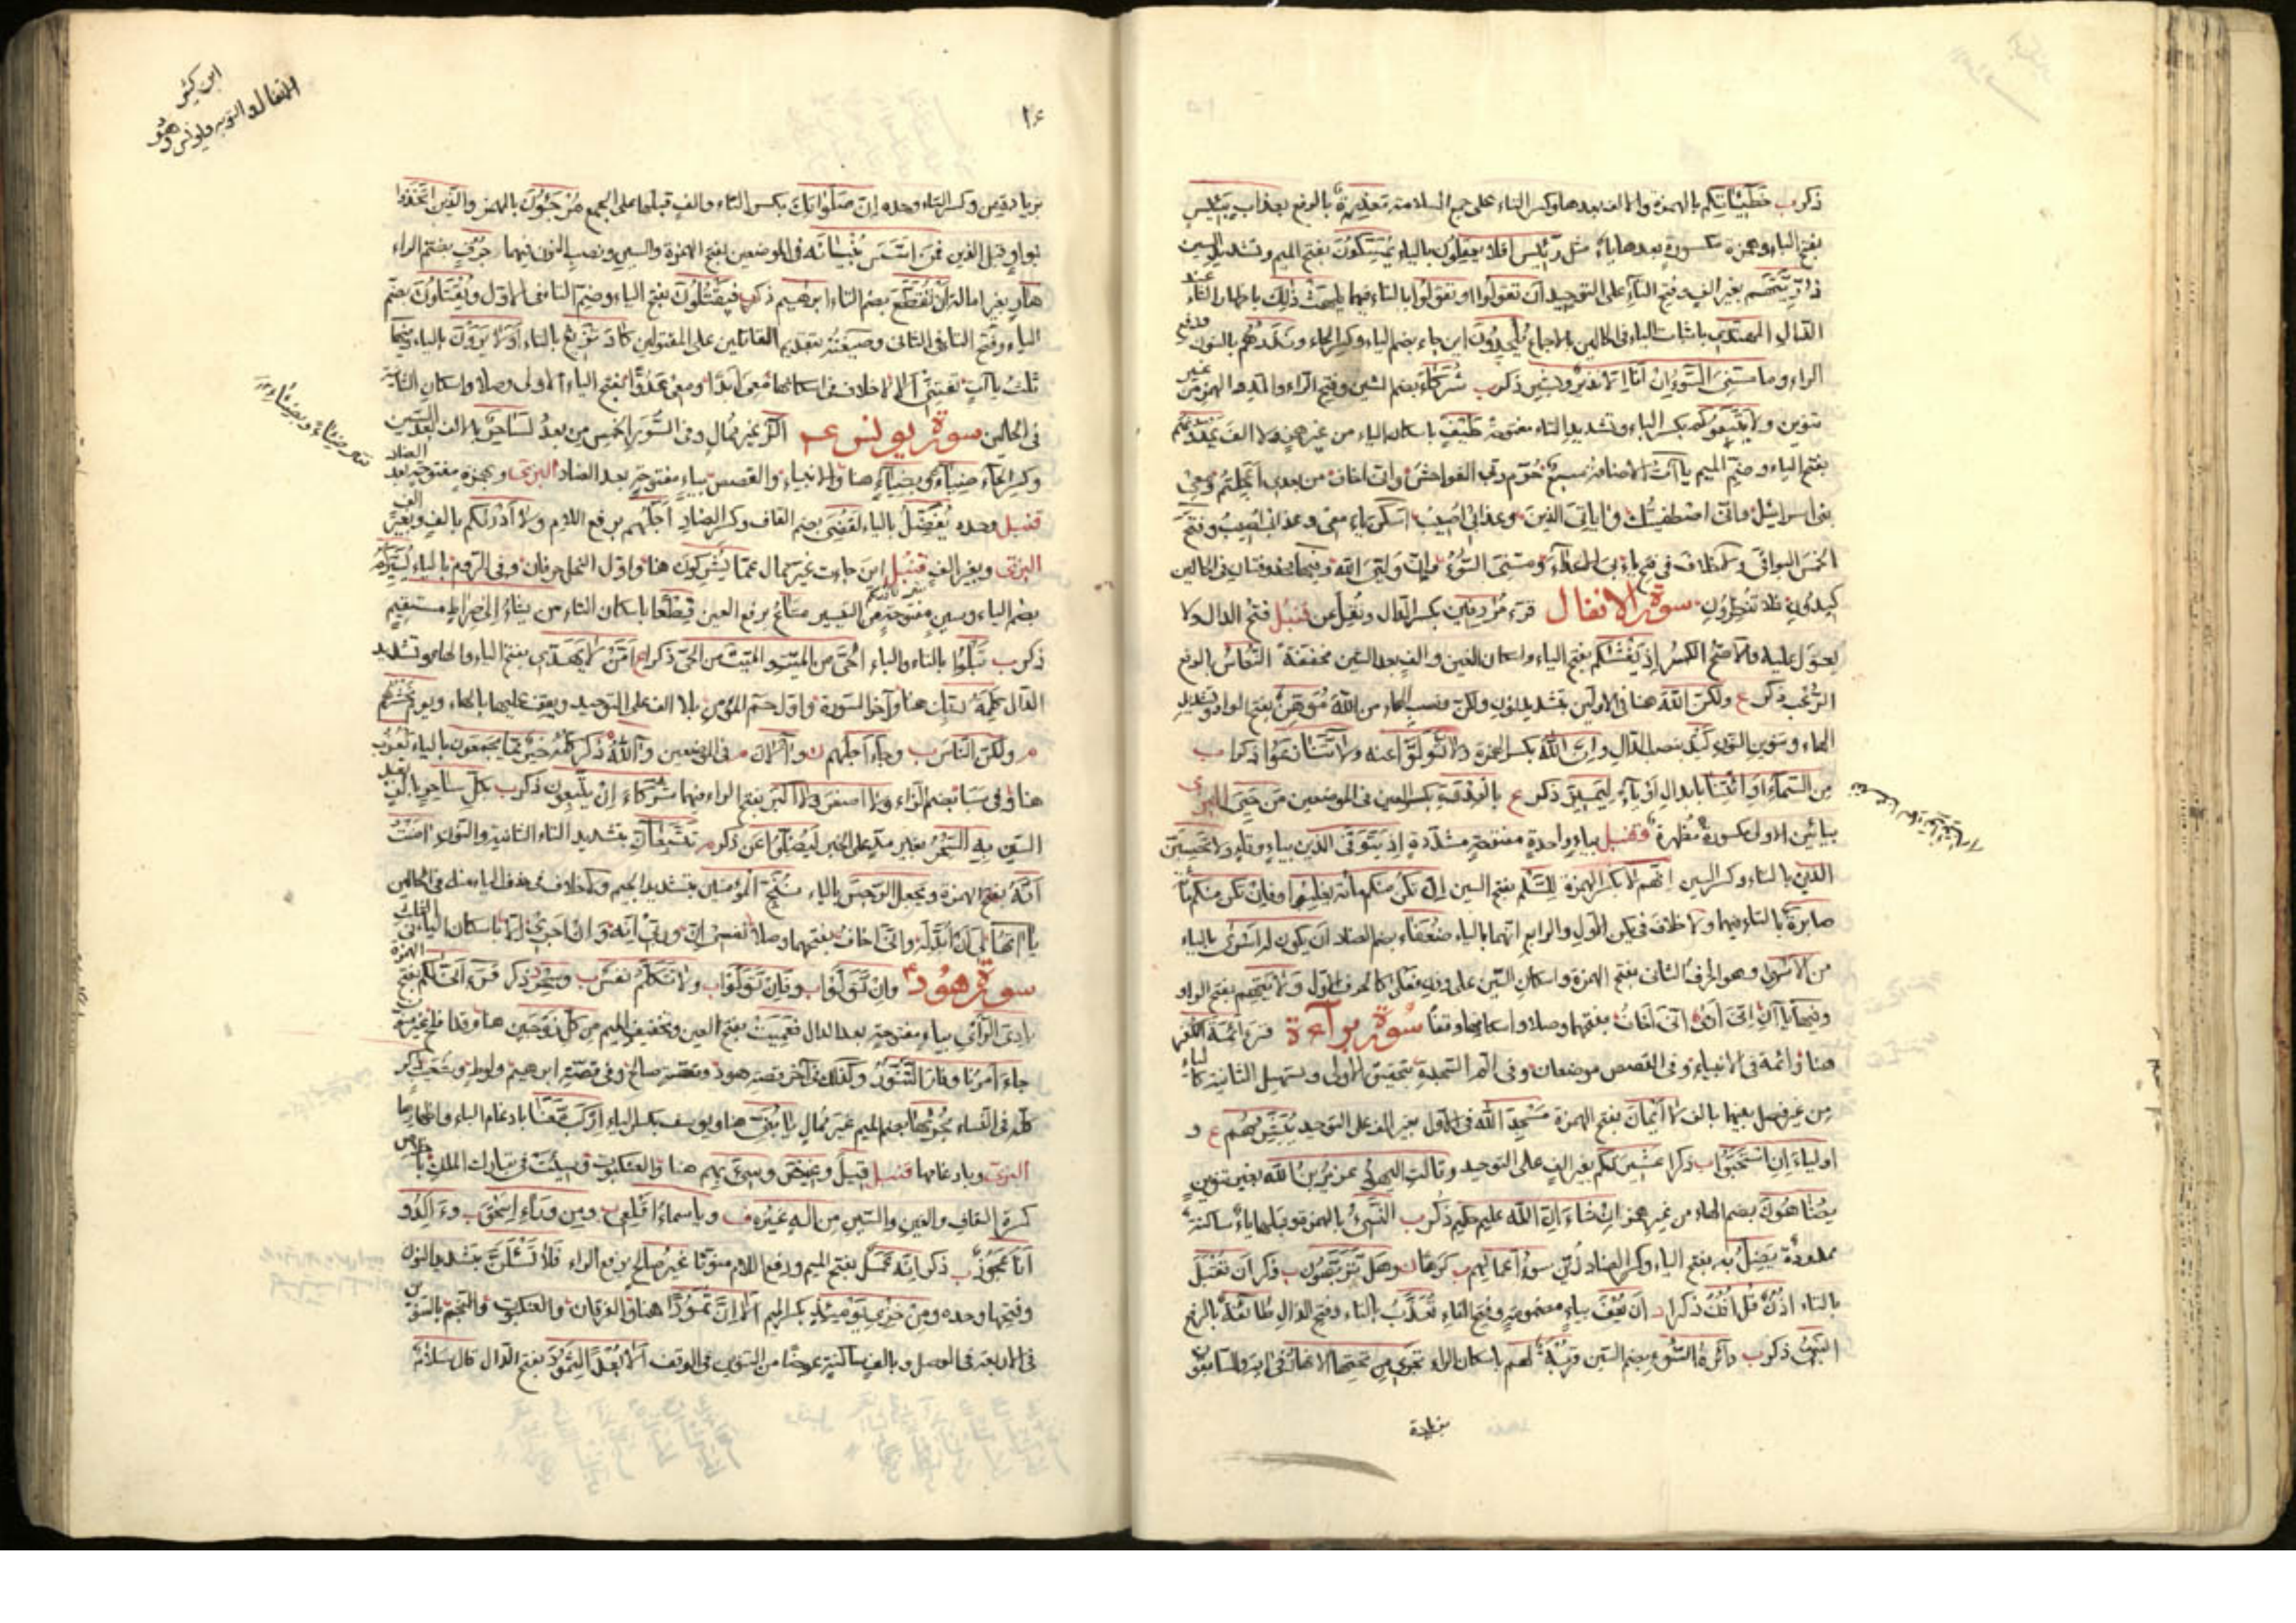 ذكر ب خطيئاتكم بالهمزة والالف بعدها وكسر التاء على جمع السلامة معذرة بالرفع بعذاب بئيس
بفتح الباء وهمزة مكسورة بعدها ياء مثل رئيس افلا يعقلون بالياء يمسكون بفتح الميم وتشديد السين
ذريتهم بغير الف وفتح التاء على التوحيد ان تقولوا او تقولوا بالتاء فيهما يلهث ذلك باظهار الثاء عند
الذال المهتدي باثبات الياء في الحالين بالاجماع يلحدون اين جاء بضم الياء وكسر الحاء ونذرهم بالنون ورفع
الراء وما مسني السوء ان انا الا نذير وبشير ذكر ب شركاء بضم الشين وفتح الراء والمد والهمز من غير
تنوين ولا يتبعوكم بكسر الباء وتشديد التاء مفتوحة طيف باسكان الياء من غير همز ولا الف يمدونهم
بفتح الياء وضم الميم ياآت الاضافة سبع حرم ربي الفواحش واني اخاف من بعدي اعجلتم ومعي
بني اسرائيل واني اصطفيتك واياتي الذين وعذابي اصيب اسكن ياء معي وعذابي اصيب وفتح
الخمس البواقي ولا خلاف في فتح ياء بي الاعداء ومسني السوء وان وليي الله وفيها محذوفتان في الحالين
كيدون فلا تنظرون سورة الانفال قرء مردفين بكسر الدال ونقل عن قنبل فتح الدال ولا
يعول عليه والاصح الكسر اذ يغشاكم بفتح الياء واسكان الغين والف بعد الشين مخففة النعاس بالرفع
الرعب ذكر ع ولكن الله هنا في الاولين بتشديد نون ولكن ونصب الهاء من الله موهن بفتح الواو وتشديد
الهاء وتنوين النون كيد بنصب الدال وان الله بكسر الهمزة ولا تولوا عنه ولا تنازعوا ذكرا ب
من السماء او ائتنا بابدال او ياء ليميز ذكر ع بالعدوة بكسر العين في الموضعين من حيي البزي
بيائين الاولى مكسورة مظهرة وقنبل بياء واحدة مفتوحة مشددة اذ يتوفى الذين بياء وتاء ولا تحسبن
الذين بالتاء وكسر السين انهم لا بكسر الهمزة للسلم بفتح السين ان تكن منكم مائة يغلبوا وفان تكن منكم مائة
صابرة بالتاء فيهما ولا خلاف في يكن الاول والرابع انهما بالياء ضعفاء بضم الضاد ان يكون له اسرى بالياء
من الاسرى وهو الحرف الثاني بفتح الهمزة واسكان السين على وزن فعلى كالحرف الاول ولايتهم بفتح الواو
وفيها ياآن اني ارى اني اخاف بفتحهما وصلا واسكانهما وقفا سورة براءة قرء ائمة الكفر
هنا وائمة في الانبياء وفي القصص موضعان وفي الم السجدة بتحقيق الاولى وتسهيل الثانية كالياء
من غير فصل بينهما بالف لا ايمان بفتح الهمزة مسجد الله في الاول بغير الف على التوحيد يبشرهم ع و
اولياء ان استحبوا ب ذكرا عشيرتكم بغير الف على التوحيد وقالت اليهود عزير بن الله بغير تنوين
يضاهون بضم الهاء من غير همز ان شاء ان الله عليم حكيم ذكر ب النسيء بالهمزة وقبلها ياء ساكنة
ممدودة يضل به بفتح الياء وكسر الضاد لهن سوء اعمالهم ب كرها ن وهل تربصون ب ذكر ان تقبل
بالتاء اذن قل اذن ذكرا د ان يعف بياء مضمومة وفتح الفاء تعذب بالتاء وفتح الذال طائفة بالرفع
النبي ذكر ب دائرة السوء بضم السين قربة لهم باسكان الراء تجري من تحتها الانهار في اية والسابقون
بزيادة
ابن كثير
الانفال والتوبة ويونس وهود
١٤
بزيادة من وكسر التاء وحده ان صلواتك بكسر التاء والف قبلها على الجمع مرجئون بالهمز والذين اتخذوا
بواو قبل الذين فمن اسس بنيانه في الموضعين بفتح الهمزة والسين ونصب النون فيهما جرف بضم الراء
هار بغير امالة الا ان تقطع بضم التاء ابراهيم ذكر ب فيقتلون بفتح الياء وضم التاء في الاول ويقتلون بضم
الياء وفتح التاء في الثاني وصيغته بتقديم القاتلين على المقتولين كاد تزيغ بالتاء اولا يرون بالياء وفيها
ثلث ياآت تفتني الا لا خلاف في اسكانها معي ابدا ومعي عدوا بفتح الياء الاولى وصلا واسكان الثانية
في الحالين سورة يونس عم الر غير ممال وفي السور الخمس من بعد لساحر بالالف بعد السين
وكسر الحاء ضياء وبضياء هنا والانبياء والقصص بياء مفتوحة بعد الضاد البزي وبهمزة مفتوحة بعد الضاد
قنبل وحده يفصل بالياء لقضي بضم القاف وكسر الضاد اجلهم برفع اللام ولا ادريكم بالف وبغير الف
البزي وبغير الف قنبل اين جاءت غير ممال عما يشركون هنا واول النحل حرفان وفي الروم بالياء يسيركم
بضم الياء وسين مفتوحة من التسيير متاع برفع العين قطعا باسكان الطاء من يشاء الى صراط مستقيم
ذكر ب تبلوا بالتاء والباء الحي من الميت والميت من الحي ذكرا ع امن لا يهدي بفتح الياء والهاء وتشديد
الدال كلمة ربك هنا وآخر السورة واول حم المؤمن بلا الف على التوحيد ويقف عليها بالهاء ويوم نحشرهم
ولكن الناس ب وجاء اجلهم ن وآلان م في الموضعين وآلله ذكر خير مما يجمعون بالياء يعزب
هنا وفي سبا بضم الزاء ولا اصغر ولا اكبر بفتح الراء فيهما شركاء ان يتبعون ذكر ب بكل ساحر بالف بعد
السين به السحر بغير مد على الخبر ليضلوا عن ذكر م تتبعان بتشديد التاء الثانية والنون امنت
انه بفتح الهمزة ويجعل الرجس بالياء ننج المؤمنين بتشديد الجيم ولا خلاف في حذف الياء منه في الحالين
ياآتها لي ان ابدله واني اخاف بفتحهما وصلا نفسي ان وربي انه وان اجري الا باسكان الياء في الثلث
سورة هود وان تولوا ب وفان تولوا ب ولا تكلم نفس ب وسحر ذكر قرء اني لكم بفتح الهمزة
بادي الراي بياء مفتوحة بعد الدال فعميت بفتح العين وتخفيف الميم من كل زوجين هنا وقد افلح بغير تنوين
جاء امرنا وفار التنور وكذلك في آخر قصة هود وقصة صالح وفي قصة ابراهيم ولوط وشعيب ذكر
كله في النساء مجريها بضم الميم غير ممال يا بني هنا ويوسف بكسر الياء اركب معنا بادغام الباء واظهارها
البزي وبادغامها قنبل قيل وغيض وسيء بهم هنا والعنكبوت وسيئت في تبارك الملك باخلاص
كسرة القاف والغين والسين من اله غيره ب ويا سماء اقلعي ب ومن وراء اسحق ب وء الد و
انا عجوز ب ذكر انه عمل بفتح الميم ورفع اللام منونا غير صالح برفع الراء فلا تسئلن بتشديد النون
وفتحها وحده ومن خزي يومئذ بكسر الميم الا ان ثمودا هنا والفرقان والعنكبوت والنجم بالتنوين
في الاربعة في الوصل وبالف ساكنة عوضا من التنوين في الوقف الا بعدا لثمود بفتح الدال قال سلام